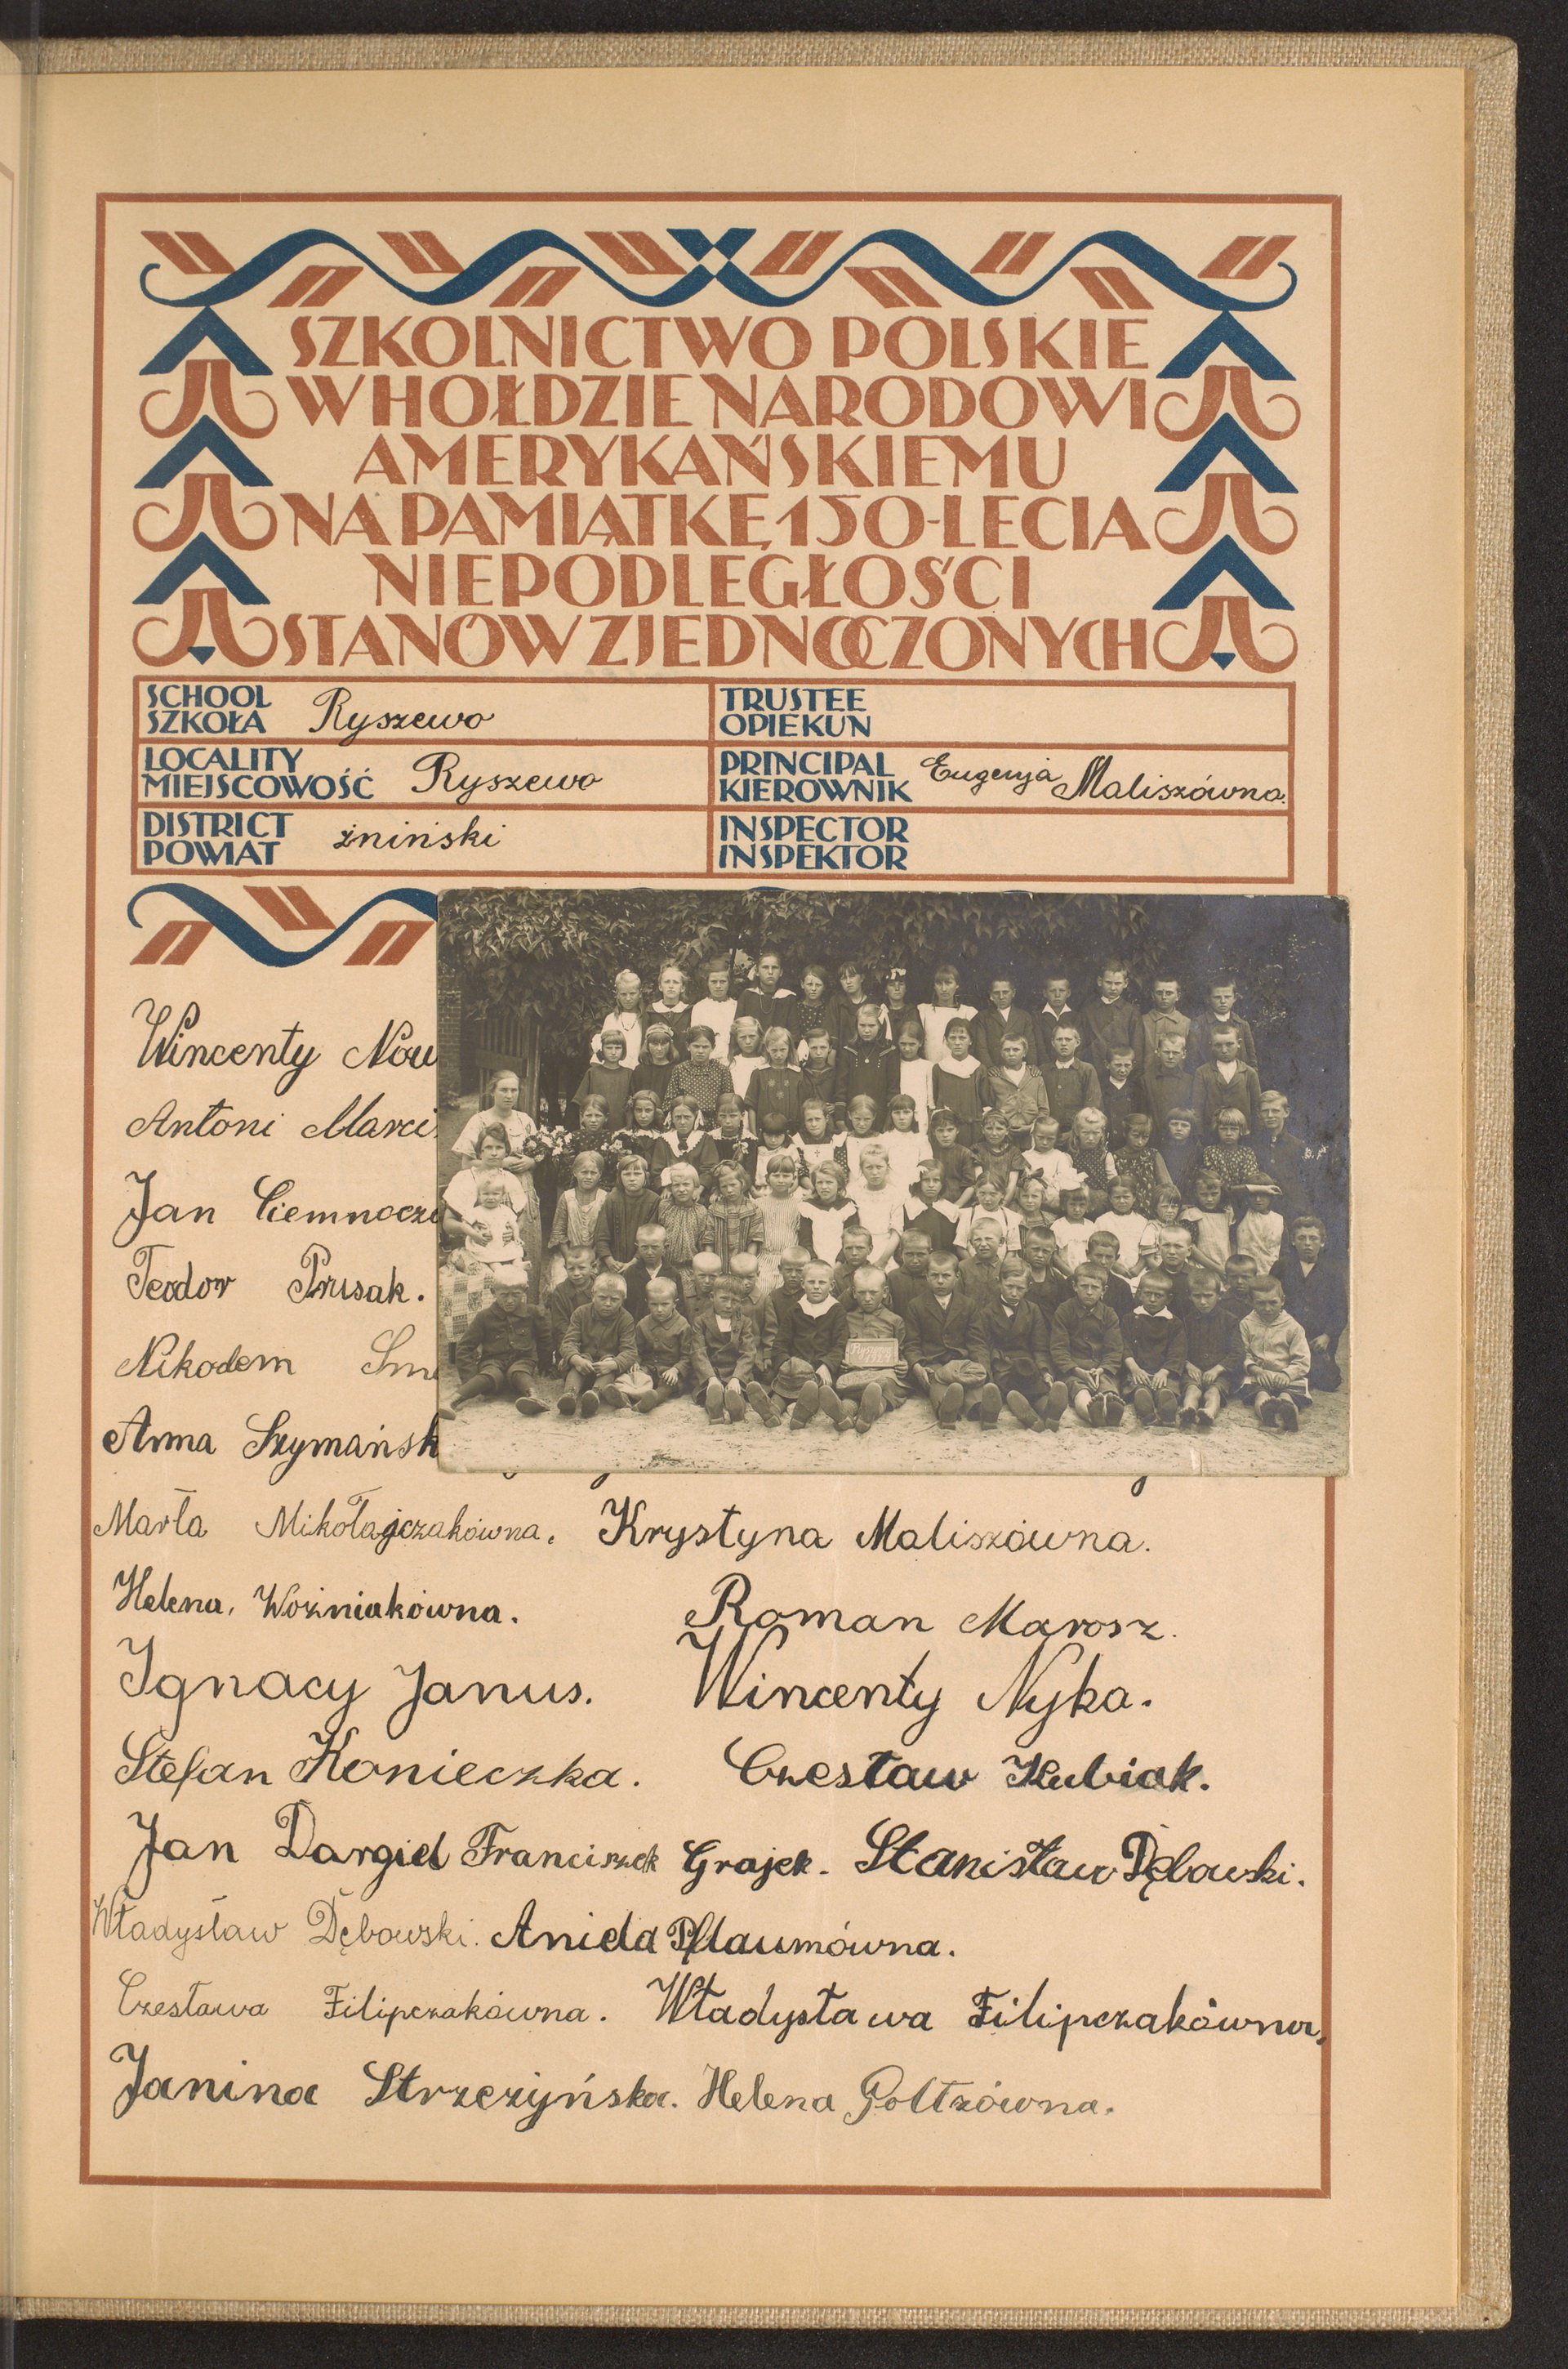 SZKOLNICTWO POLSKIE
W HOŁDZIE NARODOWI
AMERYKAŃSKIEMU
NA PAMIĄTKĘ 150-LECIA
NIEPODLEGŁOŚCI
STANÓW ZJEDNOCZONYCH
SCHOOL
SZKOŁA Ryszewo
TRUSTEE
OPIEKUN
LOCALITY
MIEJSCOWOŚĆ Ryszewo
PRINCIPAL
KIEROWNIK Eugenja Maliszówna.
DISTRICT
POWIAT żniński
INSPECTOR
INSPEKTOR
Wincenty Now
Antoni Marci
Jan Ciemnocz
Teodor Prusak.
Nikodem Sm
Anna Szymańsk
Marta Mikołajczakówna. Krystyna Maliszówna.
Helena, Woźniakówna. Roman Marosz.
Ignacy Janus. Wincenty Nyka.
Stefan Konieczka. Czesław Kubiak.
Jan Dargiel Franciszek Grajek. Stanisław Dębowski.
Władysław Dębowski. Aniela Pflaumówna.
Czesława Filipczakówna. Władysława Filipczakówna.
Janina Strzeżyńska. Helena Goltzówna.